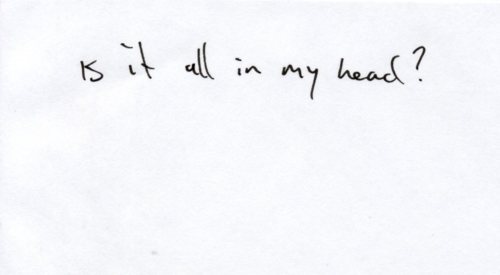 Is it all in my head?